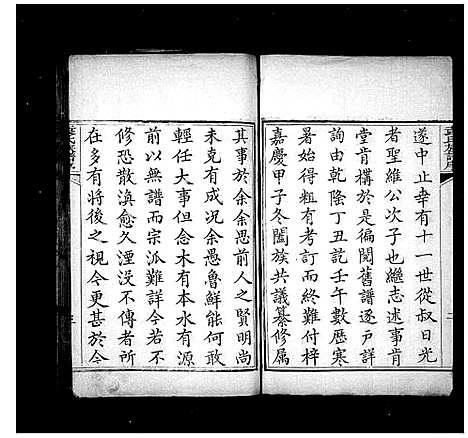 遂中止幸有十一世從叔日光
者聖維公次子也繼志述事肯
堂肯構於是徧閱舊譜逐戸詳
詢由乾隆丁丑訖壬午數歷寒
暑始得粗有考訂而終難付梓
嘉慶甲子冬闔族共議纂修屬
其事於余余愚前人之賢明尚
未克有成况余愚魯鮮能何敢
輕任大事但念木有本水有源
前以無譜而宗派難詳今若不
修恐散渙愈久湮没不傳者所
在多有將後之視今更甚於今
三